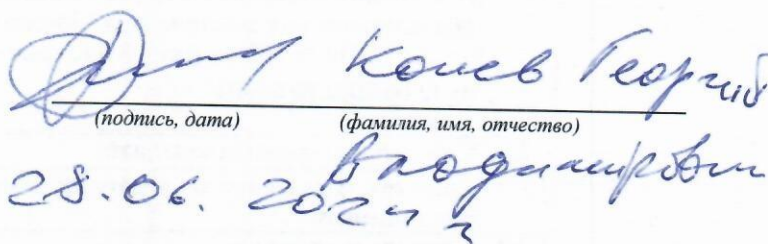 Конев Георгий
(подпись, дата) (фамилия, имя, отчество)
Владимирович
28.06.2024 г